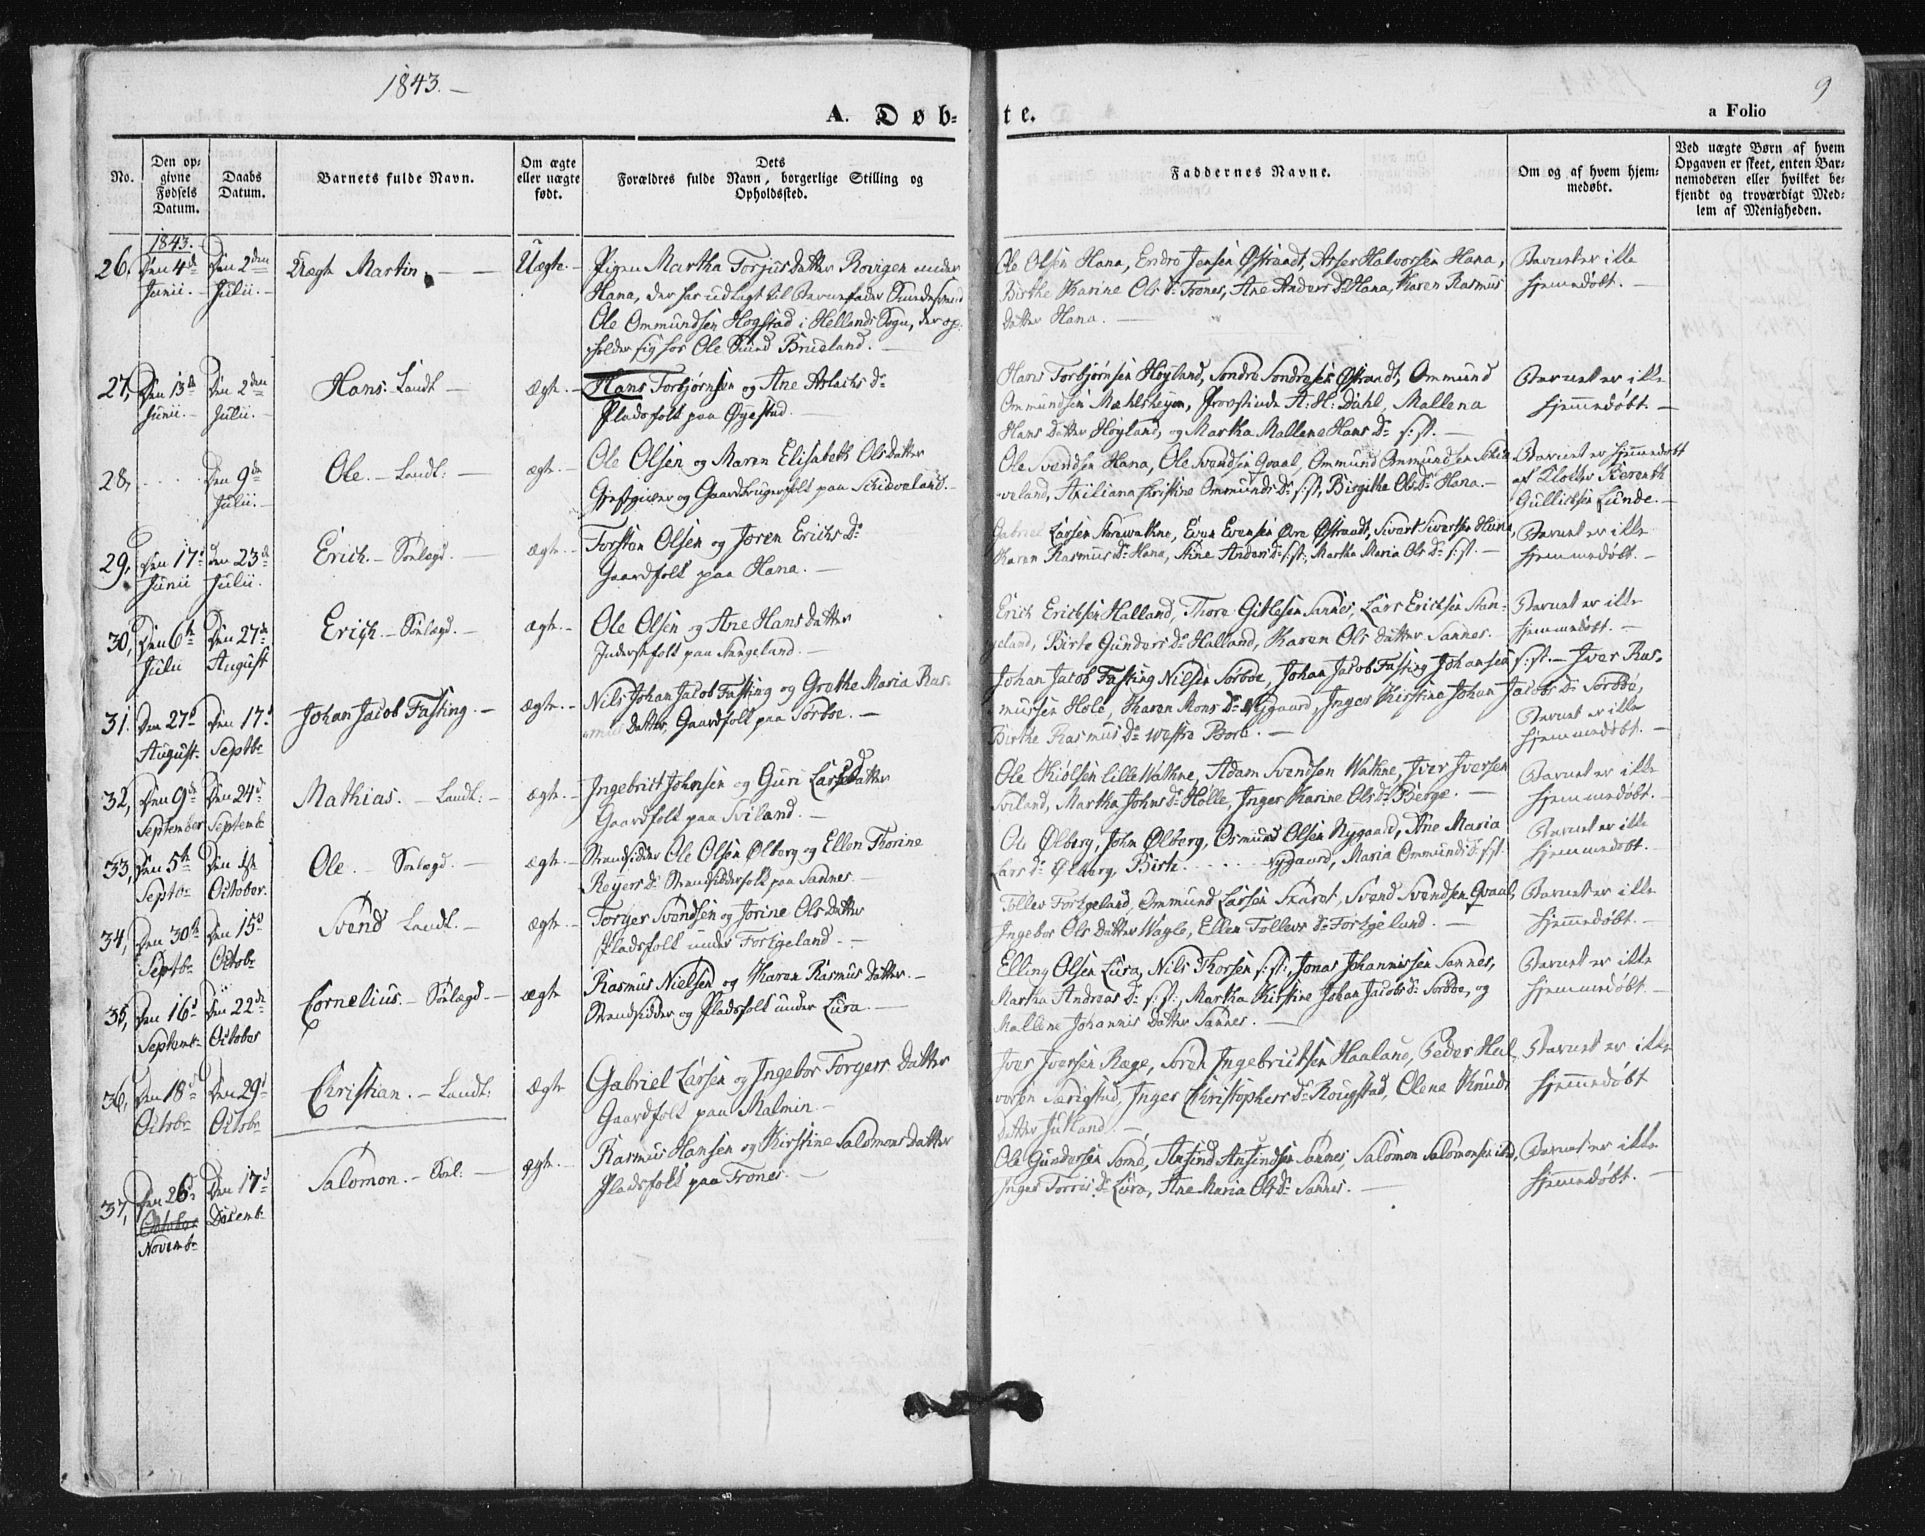 1843.
9
A. Døb-
te.
a Folio
No.
Den op-
givne
Fødsels
Datum.
Daabs
Datum.
Barnets fulde Navn.
Om ægte
eller uægte
født.
Dets
Forældres fulde Navn, borgerlige Stilling og
Opholdssted.
Faddernes Navne.
Om og af hvem hjem-
medøbt.
Ved uægte Børn af hvem
Opgaven er skeet, enten Bar-
nemoderen eller hvilket be-
kjendt og troværdigt Med-
lem af Menigheden.
1843.
26. Den 4de Den 2den Uægte Martin. Uægte. Pigen Martha Torjusdatter Rovigen under
Junii. Julii. Hana, der har udlagt til Barnefader
Ole Ommundsen Hogstad i Hellands Sogn, der op-
holder sig hos Ole Brueland.
Ole Olsen Hana, Endre Jensen Østraadt, Asser Halvorsen Hana,
Birthe Karine Ols Dr Trones, Ane Anders Dr Hana, Karen Rasmus
datter Hana.
Barnet er ikke
hjemmedøbt.
27, Den 13de Den 2den Hans. Landt ægte Hans Torbjørnsen og Ane Aslachs Dr
Junii. Julii. Pladsfolk paa Øyestad.
Hans Torbjørnsen Høyland, Sondre Sondresen Østraadt, Ommund
Ommundsen Mæhlsheyen, Provstinde A: H: Dahl, Mallena
Hans Datter Høyland, og Martha Mallene Hans Dr s: st.
Barnet er ikke
hjemmedøbt.
28, Den 9de Ole. Landt: ægte Ole Olsen og Maren Elisabeth Olsdatter
Julii. Giestgiver og Gaardbrugerfolk paa Schieveland.
Ole Svendsen Hana, Ole Svendsen Qvaal, Ommund Ommundsen Schie
veland, Axiliana Christine Ommunds Dr s: st, Birgithe Ols Dr Hana.
Barnet er hjemmedøbt
af Klokker Berenth
Gullichsen Lunde.
29, Den 17de Den 23de Erich. Sønlægd. ægte Torsten Olsen og Joren Erichs Dr
Junii Julii. Gaardfolk paa Hana.
Gabriel Larsen, Even Evensen Øvre Østraadt, Sivert Sivertsen Hana,
Karen Rasmus Dr Hana, Stine Anders Dr s: st:, Martha Maria Ols Dr s: st.
Barnet er ikke
hjemmedøbt.
30, Den 6te Den 27de Erich. Sønlægd. ægte Ole Olsen og Ane Hans datter
Julii August Inderstfolk paa Stangeland.
Erich Erichsen Halland, Thore Gitlesen Sannes, Lars Erichsen Stan-
geland, Birte Gunders Dr Halland, Karen Ols datter Sannes.
Barnet er ikke
hjemmedøbt.
31. Den 27de Den 17de Johan Jacob Fasting. ægte. Nils Johan Jacob Fasting og Grethe Maria Ras-
August. Septbr mus datter, Gaardfolk paa Sørboe.
Johan Jacob Fasting Nilsen Sørboe, Johan Jacob Fasting Johansen s: st. Iver Ras-
mussen Hole, Karen Mons Dr Nygaard, Inger Kirstine Johan Jacobs Dr Sørboe,
Birthe Rasmus Dr westre Bore.
Barnet er ikke
hjemmedøbt.
32, Den 9de Den 24de Mathias. Landt: ægte. Ingebrict Johnsen og Guri Larsdatter
September Septemb: Gaardfolk paa Sviland.
Ole Kiølsen lille Wathne, Adam Svendsen Wathne, Iver Iversen
Sviland, Martha Johns Dr Hølle, Inger Karine Ols Dr Berge.
Barnet er ikke
hjemmedøbt.
33, Den 5te Den 1ste Ole. Sønlægd. ægte Strandsidder Ole Olsen Ølberg og Ellen Thorine
Septbr October. Reyers Dr Strandsidderfolk paa Sannes.
Ole Ølberg, John Ølberg, Osmund Olsen Nygaard, Ane Maria
Lars Dr Ølberg, Birte Nygaard, Maria Ommunds Dr s: st.
Barnet er ikke
hjemmedøbt.
34, Den 30te Den 15de Svend Landt. ægte Torger Svendsen og Jorine Ols datter
Septbr Octobr Pladsfolk under Fortgeland.
Tollev Fortgeland, Ommund Larsen Skaret, Svend Svendsen Qvaal,
Ingebor Ols datter Wagle, Ellen Tollevs Dr Fortgeland.
Barnet er ikke
hjemmedøbt.
35, Den 16de Den 22de Cornelius. Sønlægd. ægte Rasmus Nielsen og Karen Rasmus datter.
Septembr October Strandsidder og Pladsfolk under Lura.
Elling Olsen Lura, Nils Thorsen s: st:, Jonas Johannissen Sannes,
Martha Andreas Dr s: st:, Martha Kirstine Johan Jacobs Dr Sørboe, og
Mallene Johannis datter Sannes.
Barnet er ikke
hjemmedøbt.
36, Den 18de Den 29de Christian. Landt: ægte Gabriel Larsen og Ingebor Torgers datter
Octobr Octobr Gaardfolk paa Malmin.
Iver Iversen Rage, Søren Ingebrictsen Haaland, Peder Hal-
vorsen, Inger Christophers Dr Rougstad, Olene Knuds
datter Jutland.
Barnet er ikke
hjemmedøbt
37, Den 26de Den 17de Salomon. Sønl: ægte. Rasmus Hansen og Kirstine Salomons datter
October Decemb: Pladsfolk paa Trones.
Novembr
Ole Gundersen Somme, Ansind Ansindsen Sannes, Salomon Salomonsen ibd,
Inger Torris Dr Lura, Ane Maria Ols Dr Sannes.
Barnet er ikke
hjemmedøbt.